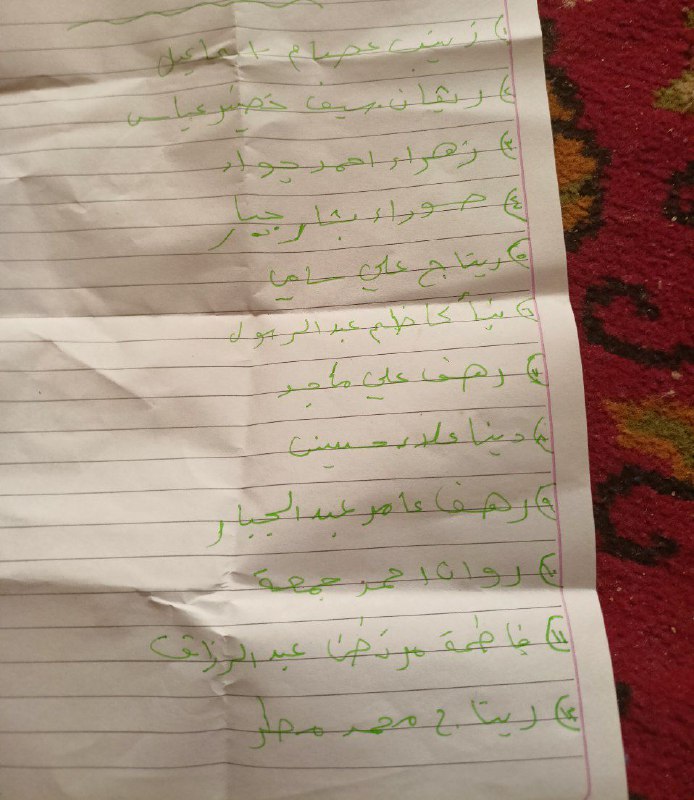 ١) زينب عصام اسماعيل
٢) ريفان سيف خضير عباس
٣) زهراء احمد جواد
٤) حوراء بشار جبار
٥) ريتاج علي سامي
٦) نبأ كاظم عبد الرسول
٧) رهف علي ماجد
٨) دينا علاء حسين
٩) رهف عامر عبد الجبار
١٠) روان احمد جمعة
١١) فاطمة مرتضا عبد الرزاق
١٢) ريتاج محمد مطر